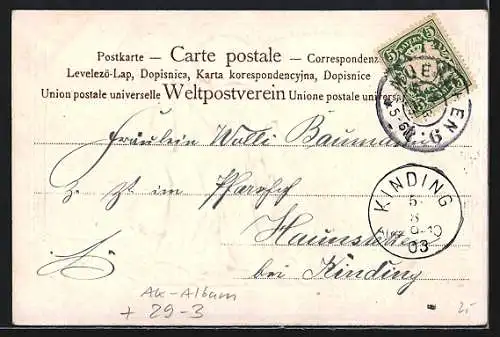 Postkarte — Carte postale — Correspondenz
Levelező-Lap, Dopisnica, Karta korespondencyjna, Dopisnice
Union postale universelle Weltpostverein Unione postale univers
5 BAYERN 5
Fräulein Wolli
z. Zt. im Pfarrhof
KINDING
5
8
03
bei Kinding
AK-Album
+ 29-3
25